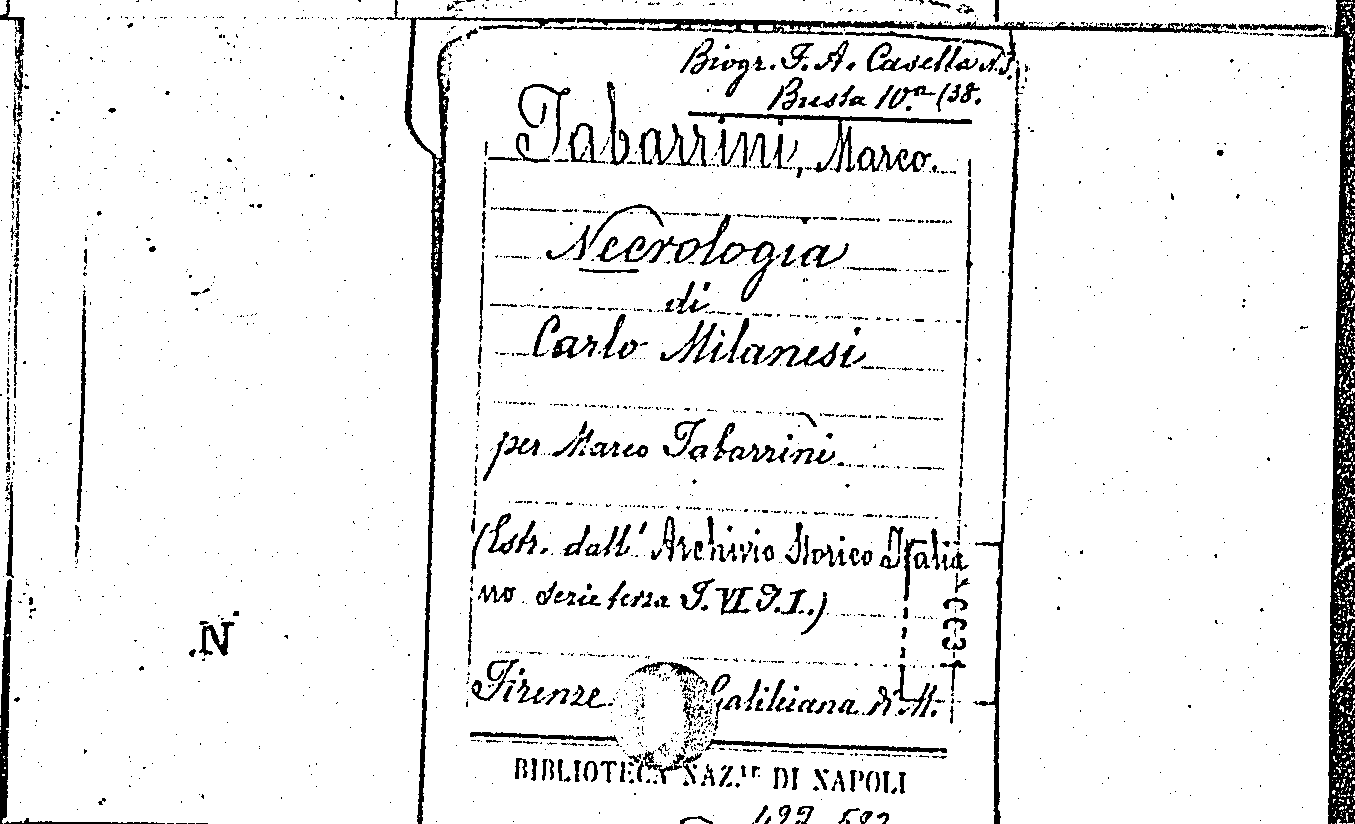 Biogr. F. A. Casella N.3
Busta 10.a (38.
Tabarrini, Marco.
Necrologia
di
Carlo Milanesi
per Marco Tabarrini.
(Estr. dall' Archivio Storico Italia
no serie terza T. VI P. I.)
Firenze Galileiana di M.
BIBLIOTECA NAZ.LE DI NAPOLI
N.